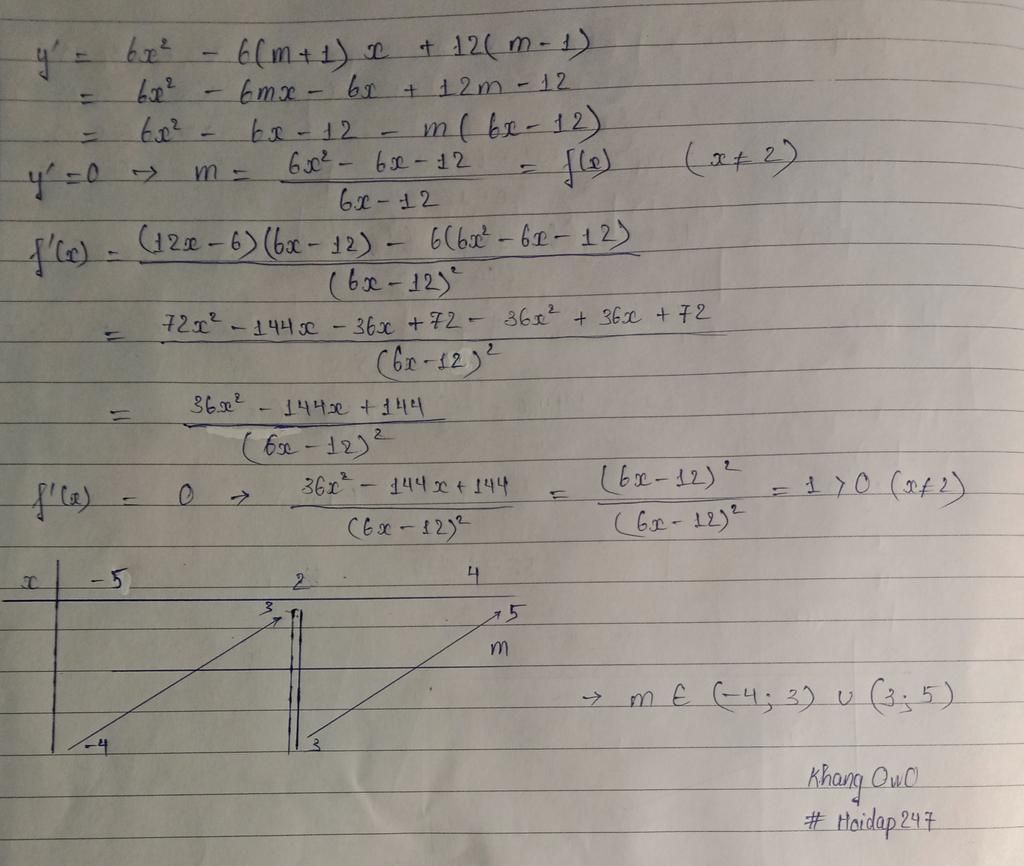 y' = 6x² - 6(m+1)x + 12(m-1)
= 6x² - 6mx - 6x + 12m - 12
= 6x² - 6x - 12 - m(6x-12)
y'=0 → m = (6x² - 6x - 12)/(6x-12) = f(x) (x≠2)
f'(x) = ((12x-6)(6x-12) - 6(6x²-6x-12))/(6x-12)²
= (72x² - 144x - 36x + 72 - 36x² + 36x + 72)/(6x-12)²
= (36x² - 144x + 144)/(6x-12)²
f'(x) = 0 → (36x² - 144x + 144)/(6x-12)² = (6x-12)²/(6x-12)² = 1 > 0 (x≠2)
x -5 2 4
3 5
m
→ m ∈ (-4; 3) ∪ (3; 5)
-4 3
Khang OwO
# Hoidap247